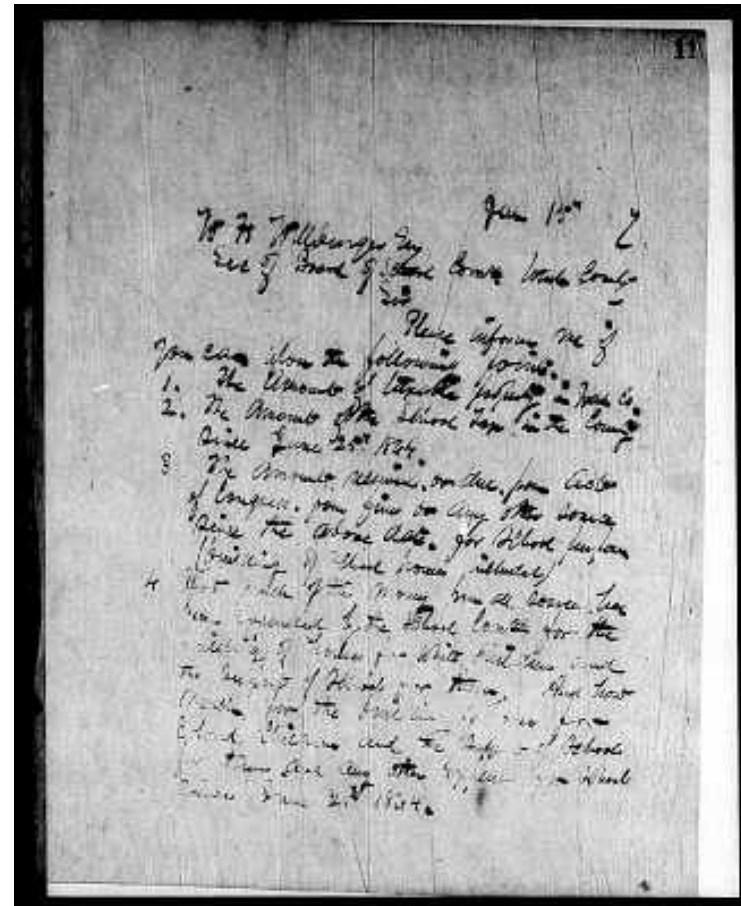 11
Jan 15th 7.
W H Wilburger Esq
Sec of Board of School Comrs Wash County
Sir
Please inform me if
you can upon the following points.
1. The Amount of taxable property in Wash Co.
2. The Amount of the School Tax in the County
Since June 25th 1864.
3 The Amount received or due from Acts
of Congress. from fines or any other source
Since the above date. for School purposes
(building of School houses included)
4 How much of the money from all sources has
been expended by the School Comtee for the
building of houses for White children and
the keeping of Schools for them, And how
much for the building of houses for
Colored Children and the Support of Schools
for them and any other expenses for School
Since June 25th 1864.